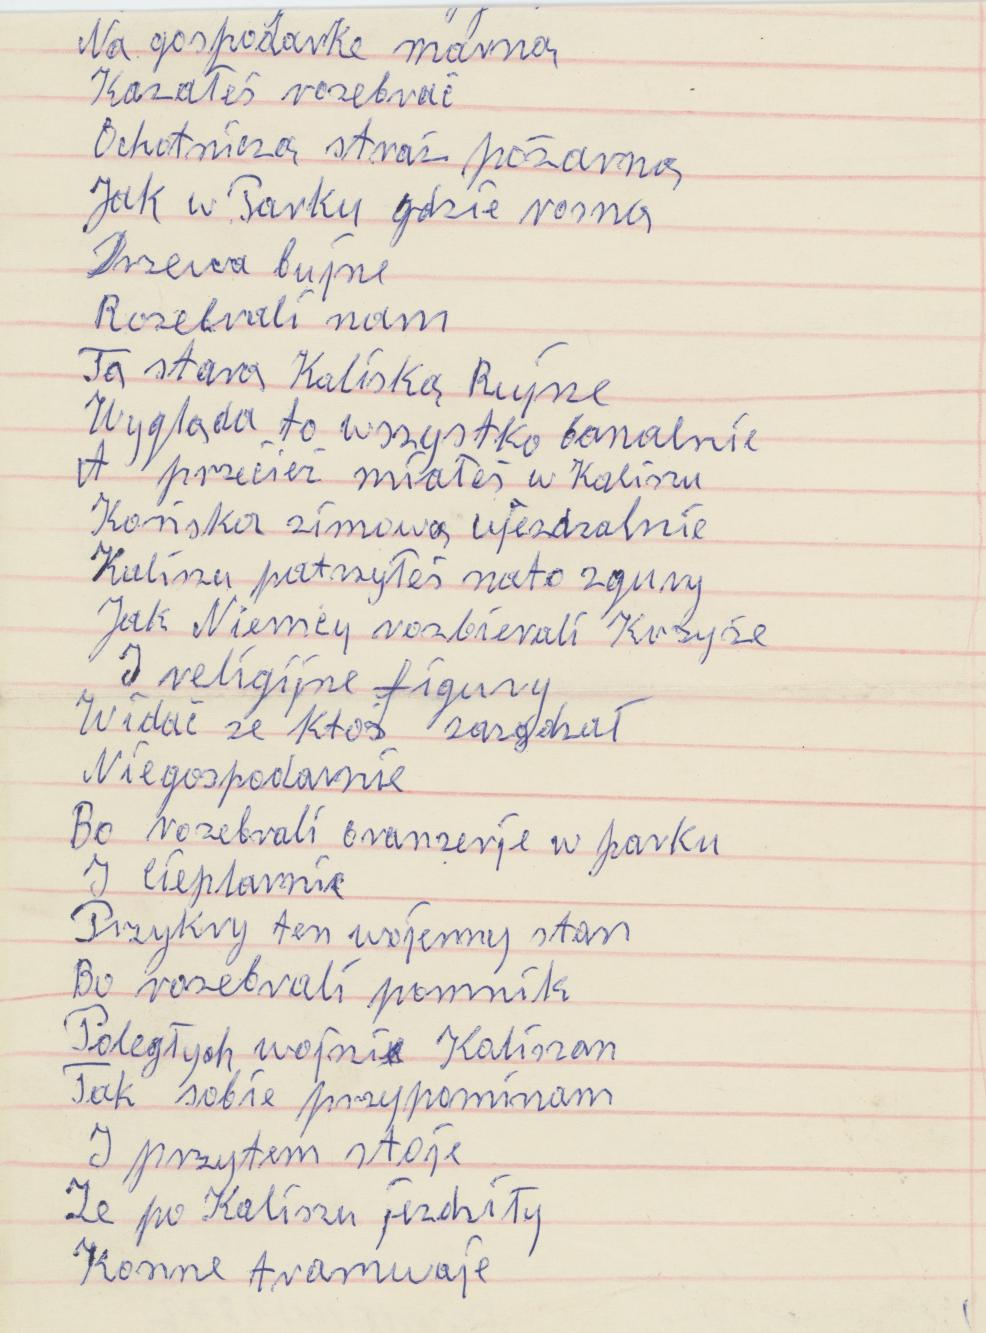 Na gospodarke marną
Kazałeś rozebrać
Ochotniczą straż pożarną
Jak w Parku gdzie rosną
Drzewa bujne
Rozebrali nam
Tą starą Kaliską Rujne
Wygląda to wszystko banalnie
A przecież miałeś w Kaliszu
Końska zimową ujezdzalnie
Kaliszu patrzyłeś nato zgury
Jak Niemcy rozbierali Krzyże
I religijne figury
Widać ze ktoś zarządzał
Niegospodarnie
Bo rozebrali oranzerje w parku
I Cieplarnie
Przykry ten wojenny stan
Bo rozebrali pomnik
Poległych wojnie Kaliszan
Tak sobie przypominam
I przytem stoje
Ze po Kaliszu jezdziły
Konne tramwaje